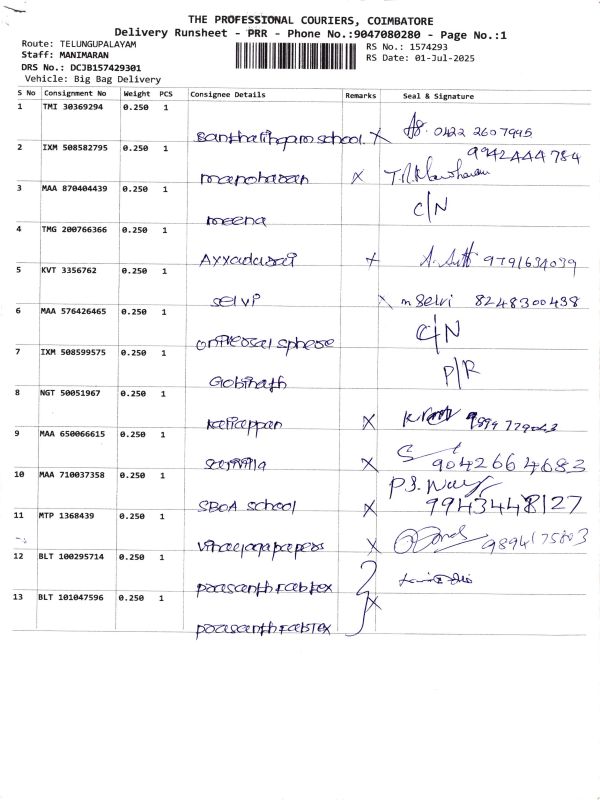 THE PROFESSIONAL COURIERS, COIMBATORE
Delivery Runsheet - PRR - Phone No.:9047080280 - Page No.:1
Route: TELUNGUPALAYAM
RS No.: 1574293
Staff: MANIMARAN
RS Date: 01-Jul-2025
DRS No.: DCJB157429301
Vehicle: Big Bag Delivery
S No Consignment No Weight PCS Consignee Details Remarks Seal & Signature
1 TMI 30369294 0.250 1
santhalingam school X 0422 2607995
2 IXM 508582795 0.250 1 9942444784
manoharan X T.R. Manoharan
3 MAA 870404439 0.250 1 C/N
meena
4 TMG 200766366 0.250 1
Ayyadurai X 9791634039
5 KVT 3356762 0.250 1
selvi X m selvi 8248300438
6 MAA 576426465 0.250 1 C/N
sphere
7 IXM 508599575 0.250 1 P/R
Gobinath
8 NGT 50051967 0.250 1
Kaliappan X
9 MAA 650066615 0.250 1
X 9042664683
10 MAA 710037358 0.250 1
SBOA school X 9943448127
11 MTP 1368439 0.250 1
vinayaga papers X 9894175803
12 BLT 100295714 0.250 1
prasanth fabtex
13 BLT 101047596 0.250 1 X
prasanth fabtex